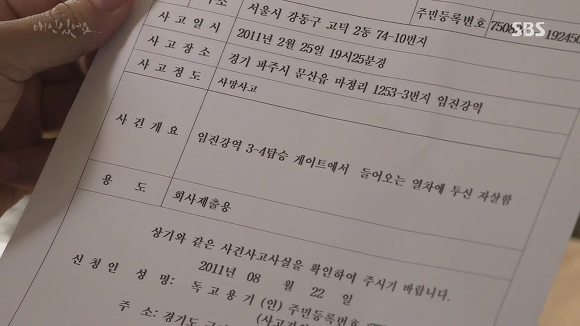 애인있어요
SBS
주소 서울시 강동구 고덕 2동 74-10번지 주민등록번호
사고일시 2011년 2월 25일 19시25분경
사고장소 경기 파주시 문산읍 마정리 1253-3번지 임진강역
사고정도 사망사고
사건개요 임진강역 3-4탑승 게이트에서 들어오는 열차에 투신 자살함
용도 회사제출용
상기와 같은 사건사고사실을 확인하여 주시기 바랍니다.
2011년 08 월 22 일
신청인 성명: 독고용기 (인) 주민등록번호
주소: 경기도